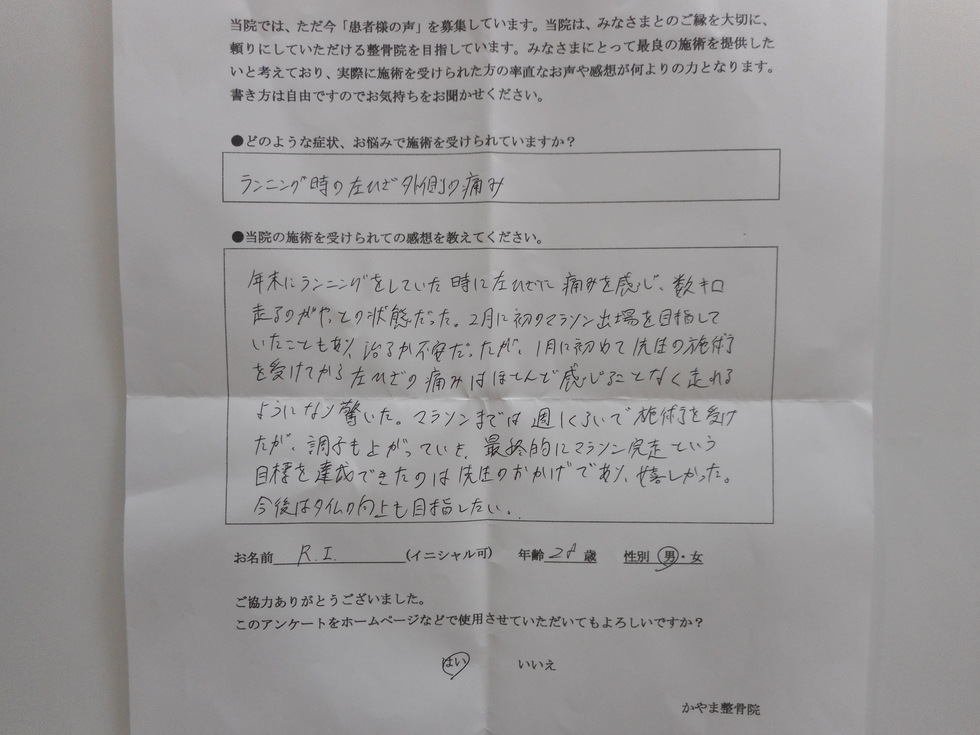 当院では、ただ今「患者様の声」を募集しています。当院は、みなさまとのご縁を大切に、
頼りにしていただける整骨院を目指しています。みなさまにとって最良の施術を提供した
いと考えており、実際に施術を受けられた方の率直なお声や感想が何よりの力となります。
書き方は自由ですのでお気持ちをお聞かせください。
●どのような症状、お悩みで施術を受けられていますか？
ランニング時の左ひざ外側の痛み
●当院の施術を受けられての感想を教えてください。
年末にランニングをしていた時に左ひざに痛みを感じ、数キロ
走るのがやっとの状態だった。2月に初のマラソン出場を目指して
いたこともあり、治るか不安だったが、1月に初めて先生の施術
を受けてから左ひざの痛みはほとんど感じることなく走れる
ようになり驚いた。マラソンまでは週1くらいで施術を受け
たが、調子も上がっていき、最終的にマラソン完走という
目標を達成できたのは先生のおかげであり、嬉しかった。
今後はタイムの向上も目指したい。
お名前 R.I. (イニシャル可) 年齢 28 歳 性別 男・女
ご協力ありがとうございました。
このアンケートをホームページなどで使用させていただいてもよろしいですか？
はい いいえ
かやま整骨院